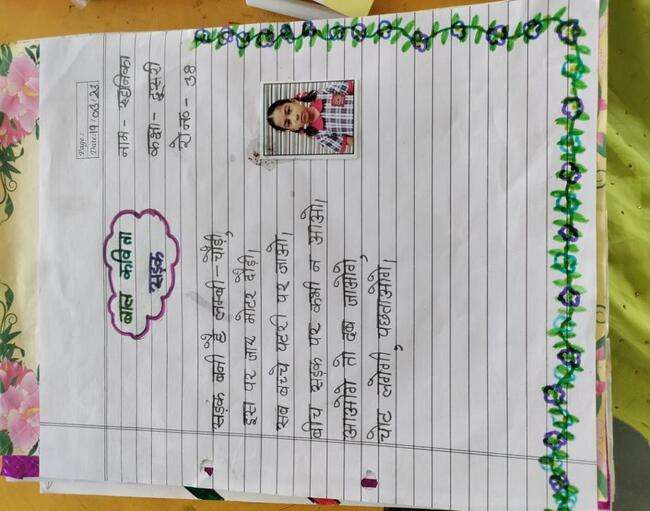 Page:
Date: 19/03/23
नाम - रुद्रानिका
कक्षा - दूसरी
रो नं० - 38
बाल कविता
सड़क
सड़क बनी है लम्बी - चौड़ी,
इस पर जाए मोटर दौड़ी।
सब बच्चे पटरी पर जाओ।
बीच सड़क पर कभी न आओ।
आओगे तो दब जाओगे,
चोट लगेगी, पछताओगे।